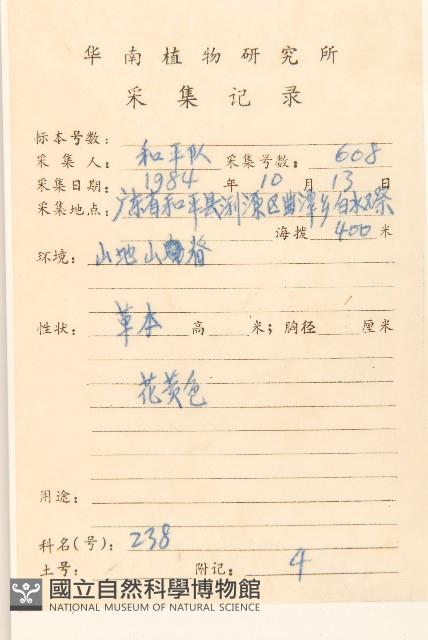 华南植物研究所
采集记录
标本号数：
采集人： 和平队 采集号数： 608
采集日期： 1984 年 10 月 13 日
采集地点： 广东省和平县浰源区曲潭乡白水
海拔 400 米
环境： 山地山脊
性状： 草本 高 米；胸径 厘米
花黄色
用途：
科名(号)： 238
土号： 附记： 4
國立自然科學博物館
NATIONAL MUSEUM OF NATURAL SCIENCE